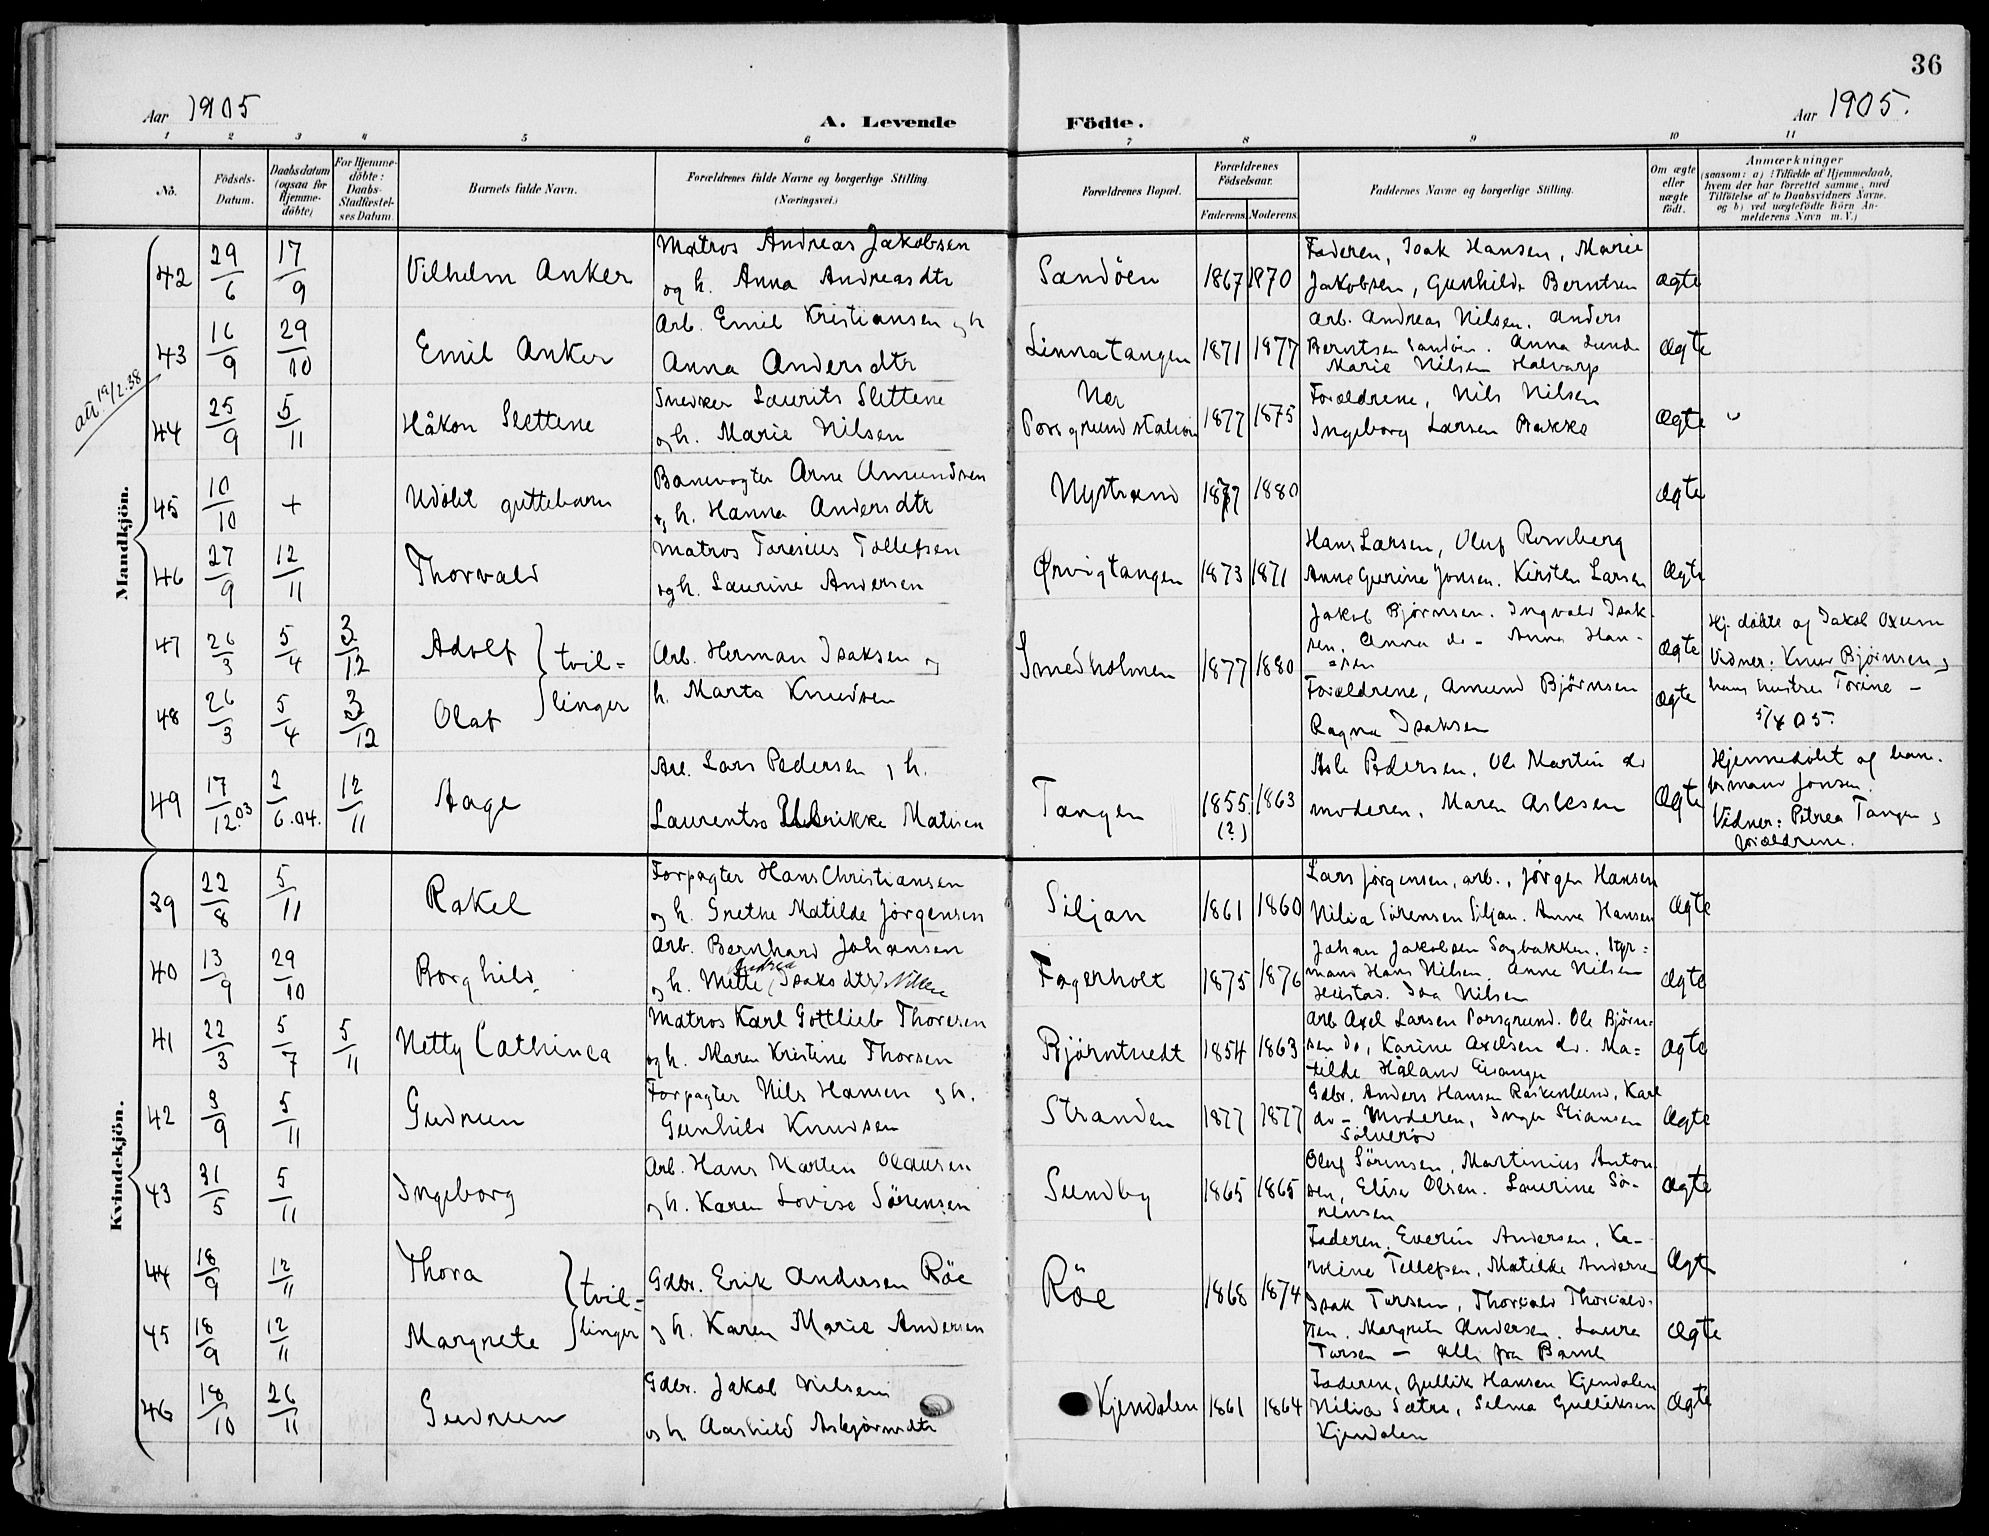 36
Aar 1905
A. Levende Födte.
Aar 1905.
1 2 3 4 5 6 7 8 9 10 11
No.
Födsels-Datum.
Daabsdatum (ogsaa for Hjemme-döbte)
For Hjemme-döbte: Daabs-Stadfæstel-ses Datum.
Barnets fulde Navn.
Forældrenes fulde Navne og borgerlige Stilling (Næringsvei.)
Forældrenes Bopæl.
Forældrenes Födselsaar.
Faderens. Moderens.
Faddernes Navne og borgerlige Stilling.
Om ægte eller uægte födt.
Anmærkninger
(saasom: a) i Tilfælde af Hjemmedaab,
hvem der har forrettet samme, med
Tilföielse af to Daabsvidners Navne.
og b) ved uægtefödte Börn An-
melderens Navn m. V.)
Mandkjön.
42 29/6 17/9 Vilhelm Anker
Matros Andreas Jakobsen
og h. Anna Andreasdtr
Sandöen 1867 1870
Faderen, Isak Hansen, Marie
Jakobsen, Gunhilda Berntsen
ægte
43 16/9 29/10 Emil Anker
Arb. Emil Kristiansen og h
Anna Andersdtr
Linnatangen 1871 1877
Arb. Andreas Nilsen. Anders
Berntsen Sandöen. Anna Lunde
Marie Nilsen Halvarp
ægte
att 19/2.38
44 25/9 5/11 Håkon Slettene
Snedker Laurits Slettene
og h. Marie Nilsen
Nær
Porsgrund station 1877 1875
Forældrene, Nils Nilsen
Ingeborg Larsen Bakke
ægte
45 10/10 + Udöbt guttebarn
Banevogter Arne Amundsen
og h. Hanna Andersdtr
Nystrand 1877 1880
ægte
46 27/9 12/11 Thorvald
Matros Taresius Tollefsen
og h. Laurine Andersen
Ørvigtangen 1873 1871
Hans Larsen, Oluf Romberg
Anne Gurine Jonsen. Kirsten Larsen
ægte
47 26/3 5/4 3/12 Adolf
48 26/3 5/4 3/12 Olaf
tvil=
linger
Arb. Herman Isaksen og
h. Marta Knudsen
Smedholmen 1877 1880
Jakob Bjørnsen. Ingvald Isak-
sen, Anna do - Anna Han-
sen
ægte
Forældrene, Amund Björnsen
Ragna Isaksen
ægte
Hj. döbte af Jakob Oxum
Vidner. Knud Bjørnsen og
hans hustru Torine -
5/4 05.
49 17/12.03 2/6.04. 12/11 Aage
Arb. Lars Pedersen og h.
Laurentse Ulrikke Matisen
Tangen 1855 (?) 1863
Asle Pedersen, Ole Martin do
moderen, Maren Aslesen
ægte
Hjemmedöbt af
Jonsen.
Vidner: Petrea Tangen og
forældrene.
Kvindekjön.
39 22/8 5/11 Rakel
Forpagter Hans Christiansen
og h. Grethe Matilde Jörgensen
Siljan 1861 1860
Lars Jörgensen, arb., Jörgen Hansen
Nilia Sörensen Siljan. Anna Hansen
ægte
40 13/9 29/10 Borghild.
Arb. Bernhard Johansen
Andrea
og h. Mette (Isaksdtr) Nilsen
Fagerholt 1875 1876
Johan Jakobsen Sagbakken. Styr=
mand Hans Nilsen. Anne Nilsen
Heistad. Ida Nilsen
ægte
41 22/3 5/7 5/11 Netty Cathinca
Matros Karl Gottlieb Thoresen
og h. Maren Kristine Thorsen
Bjørntvedt 1854 1863
Arb Axel Larsen Porsgrund. Ole Björn=
sen do, Karine Axelsen do. Ma=
tilde Håland Eidanger
ægte
42 9/9 5/11 Gudrun
Forpagter Nils Hansen og h.
Gunhild Knudsen
Stranden 1877 1877
Gdbr. Anders Hansen Raskenlund, Karl
do - Moderen, Inger Stiansen
ægte
43 31/5 5/11 Ingeborg
Arb. Hans Martin Olausen
og h. Karen Lovise Sörensen
Sundby 1865 1865
Oluf Sörensen, Martinius Anton-
sen, Elise Olsen. Laurine Sö-
rensen
ægte
44 18/9 12/11 Thora
45 18/9 12/11 Margrete
tvil=
linger
Gdbr. Erik Andersen Röe
og h. Karen Marie Andersen
Röe 1868 1874
Faderen, Everin Andersen, Ka-
roline Tellefsen, Matilde Andersen
ægte
Isak Tursen, Thorvald Thorvald-
sen. Margrete Andersen. Laura
Tursen - alle fra Bamle
ægte
46 18/10 26/11 Gudrun
Gdbr. Jakob Nilsen
og h. Aashild Asbjörnsdtr
Kjendalen 1861 1864
Faderen, Gullik Hansen Kjendalen
Nilia Sætre, Selma Gulliksen
Kjendalen
ægte